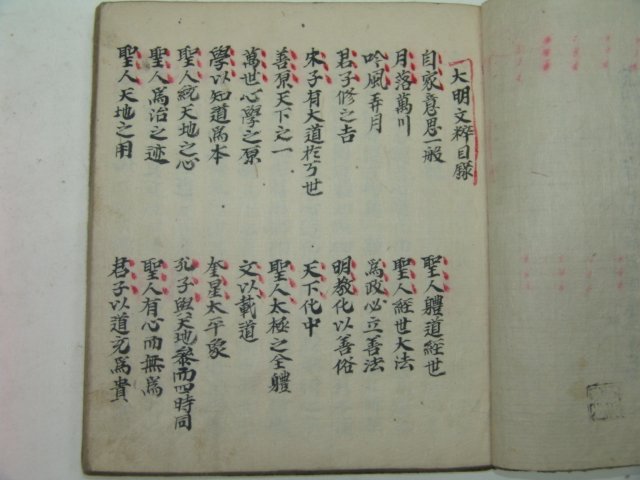 大明文粹目錄
自家意思一般
聖人體道經世
月落萬川
聖人經世大法
吟風弄月
爲政必立善法
君子修之吉
明敎化以善俗
宋子有大道於丂世
天下化中
善原天下之一
聖人太極之全體
萬世心學之原
文以載道
學以知道爲本
奎星太平象
聖人統天地之心
孔子與天地叅而四時同
聖人爲治之迹
聖人有心而無爲
聖人天地之用
君子以道充爲貴